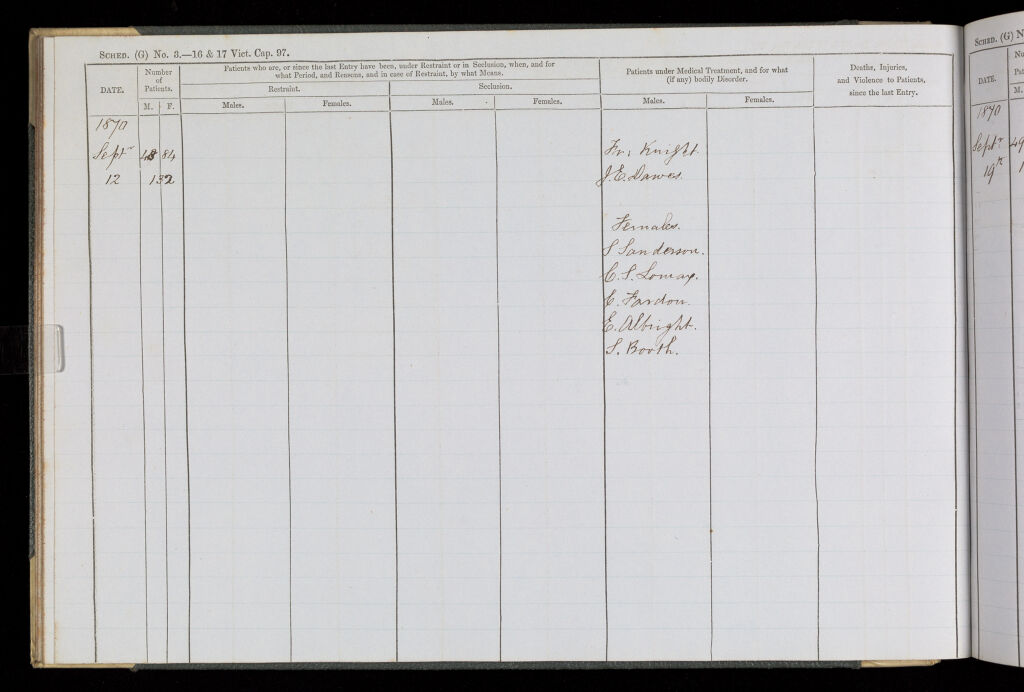 SCHED. (G) No. 3.—16 & 17 Vict. Cap. 97.
DATE.
Number
of
Patients.
M. F.
Patients who are, or since the last Entry have been, under Restraint or in Seclusion, when, and for
what Period, and Reasons, and in case of Restraint, by what Means.
Restraint.
Seclusion.
Males.
Females.
Males.
Females.
Patients under Medical Treatment, and for what
(if any) bodily Disorder.
Males.
Females.
Deaths, Injuries,
and Violence to Patients,
since the last Entry.
1870
Septr 48 84
12 132
Fr: Knight.
J. E. Dawes.
Females.
S Sanderson.
C. S. Lomax.
C. Fardon.
E. Albright.
S. Booth.
SCHED. (G) N
DATE.
M.
1870
Septr 49
19th